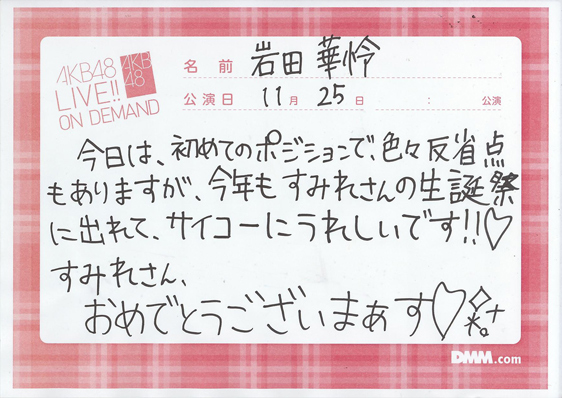 AKB48
LIVE!!
ON DEMAND
AKB
48
名前 岩田 華怜
公演日 11月 25日 : 公演
今日は、初めてのポジションで、色々反省点
もありますが、今年もすみれさんの生誕祭
に出れて、サイコーにうれしいです!!♡
すみれさん、
おめでとうございまぁす♡
DMM.com